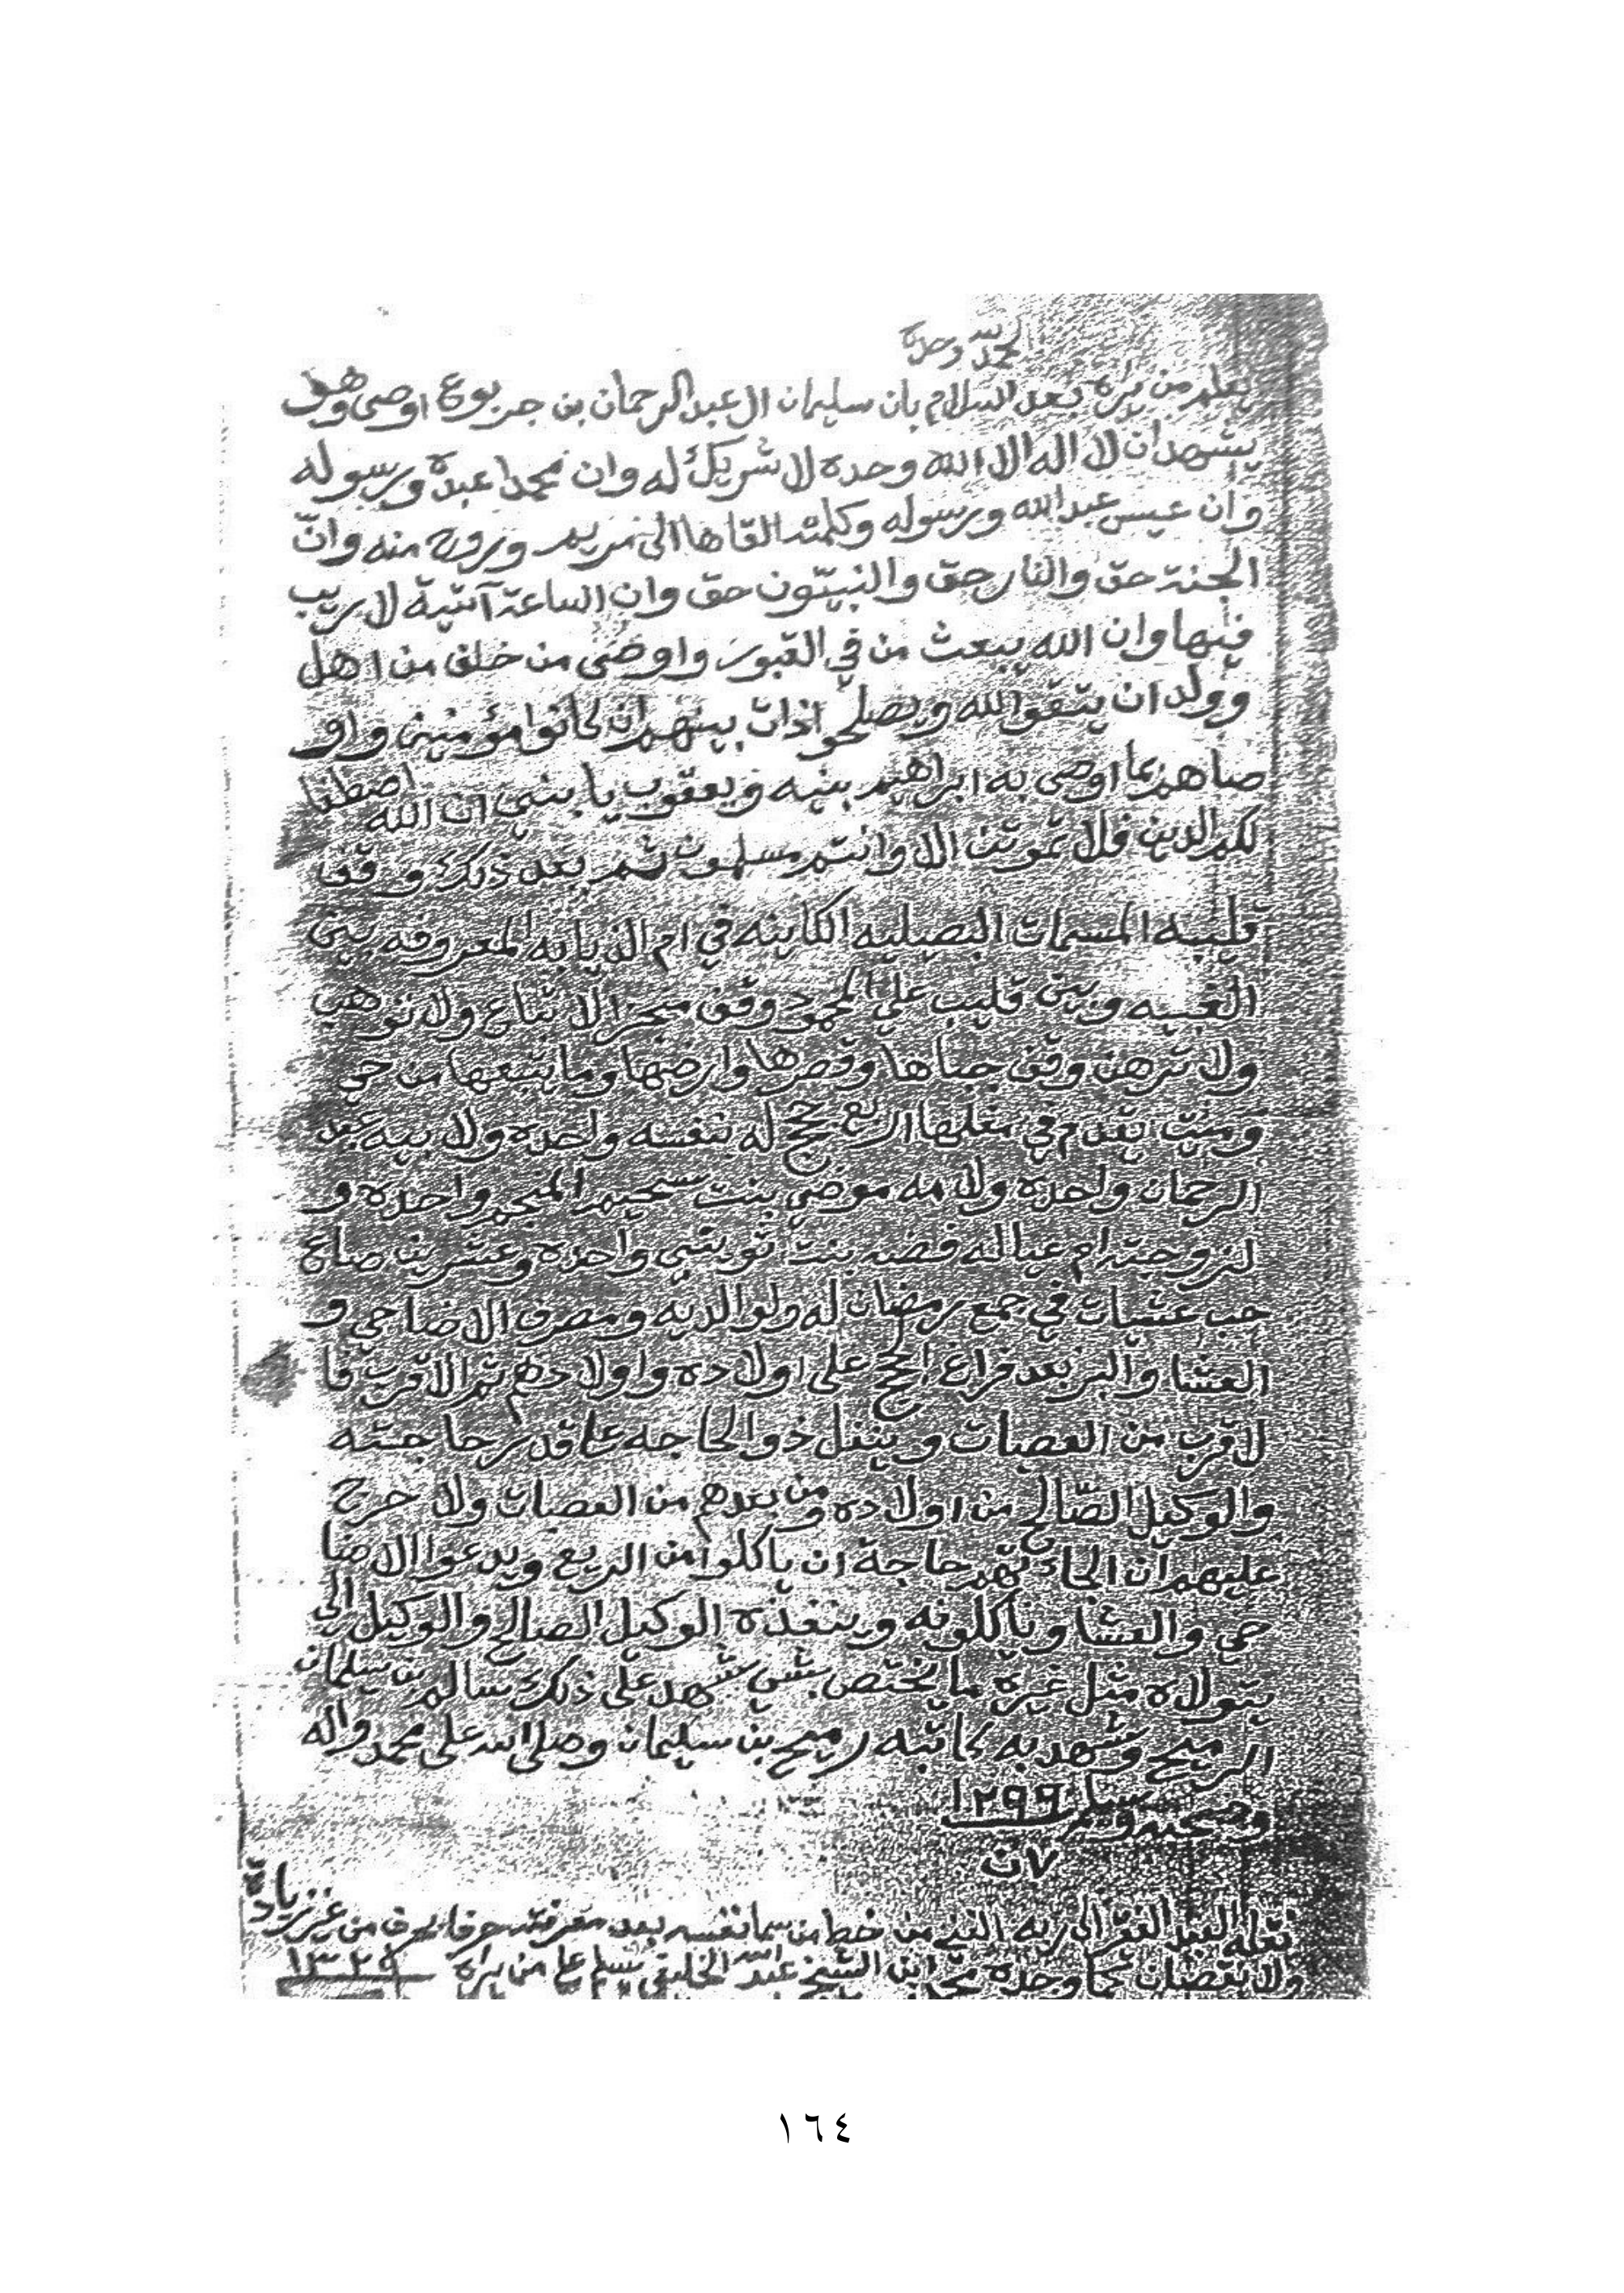 الحمد لله وحده
يعلم من يراه بعد السلام بان سليمان ال عبد الرحمان بن جربوع اوصى وهو
يشهد ان لا اله الا الله وحده لا شريك له وان محمدا عبده ورسوله
وان عيسى عبد الله ورسوله وكلمته القاها الى مريم وروح منه وانّ
الجنة حق والنار حق والنبيّون حق وان الساعة آتية لا ريب
فيها وان الله يبعث من في القبور واوصى من خلف من اهل
وولد ان يتقو الله ويصلحو اذات بينهم ان كانوا مؤمنين واو
صاهم بما اوصى به ابراهيم بنيه ويعقوب يا بني ان الله اصطفا
لكم الدين فلا تموتن الا وانتم مسلمون ثم بعد ذلك وقف
قليبه المسمات البصيليه الكاينه في ام الذيابه المعروفه بين
الغبيه وبين قليب علي المحمود وقف منجز لا تباع ولا توهب
ولا ترهن وقف جباها وقصرها وارضها وما يتبعها من حي
وميت يقدم في مغلها اربع حجج له نفسه واحده ولابيه عبد
الرحمان واحده ولامه موضي بنت سحيم المنجم واحده و
لزوجته ام عياله فضه بنت تويتني واحده وعشرين صاع
حب عشيات في جمع رمضان له ولوالديه ومصرف الاضاحي و
العشا والبر بعد فراغ الحج على اولاده واولادهم ثم الاقرب فا
لاقرب من العصبات وينفل ذو الحاجه على قدر حاجته
والوكيل الصّالح من اولاده ومن بعدهم من العصبات ولا حرج
عليهم ان الجاءتهم حاجة ان ياكلوا من الريع ويدعوا الاضا
حي والعشا وياكلونه وينفذه الوكيل الصالح والوكيل الى
يتولاه مثل غيره ما يختص بشي شهد على ذلك سالم بن سليمان
الرميح وشهد به كاتبه رميح بن سليمان وصلى الله على محمد واله
وصحبه وسلم ١٢٩٩
٧ ن
نقله العبد الفقير الى ربه من خط من سما نفسه بعد معرفته حرفا بحرف من غير زيادة
ولا نقصان كما وجده ابن الشيخ عبد الله الخليفي مسلم على من يراه ١٣٢٩
١٦٤